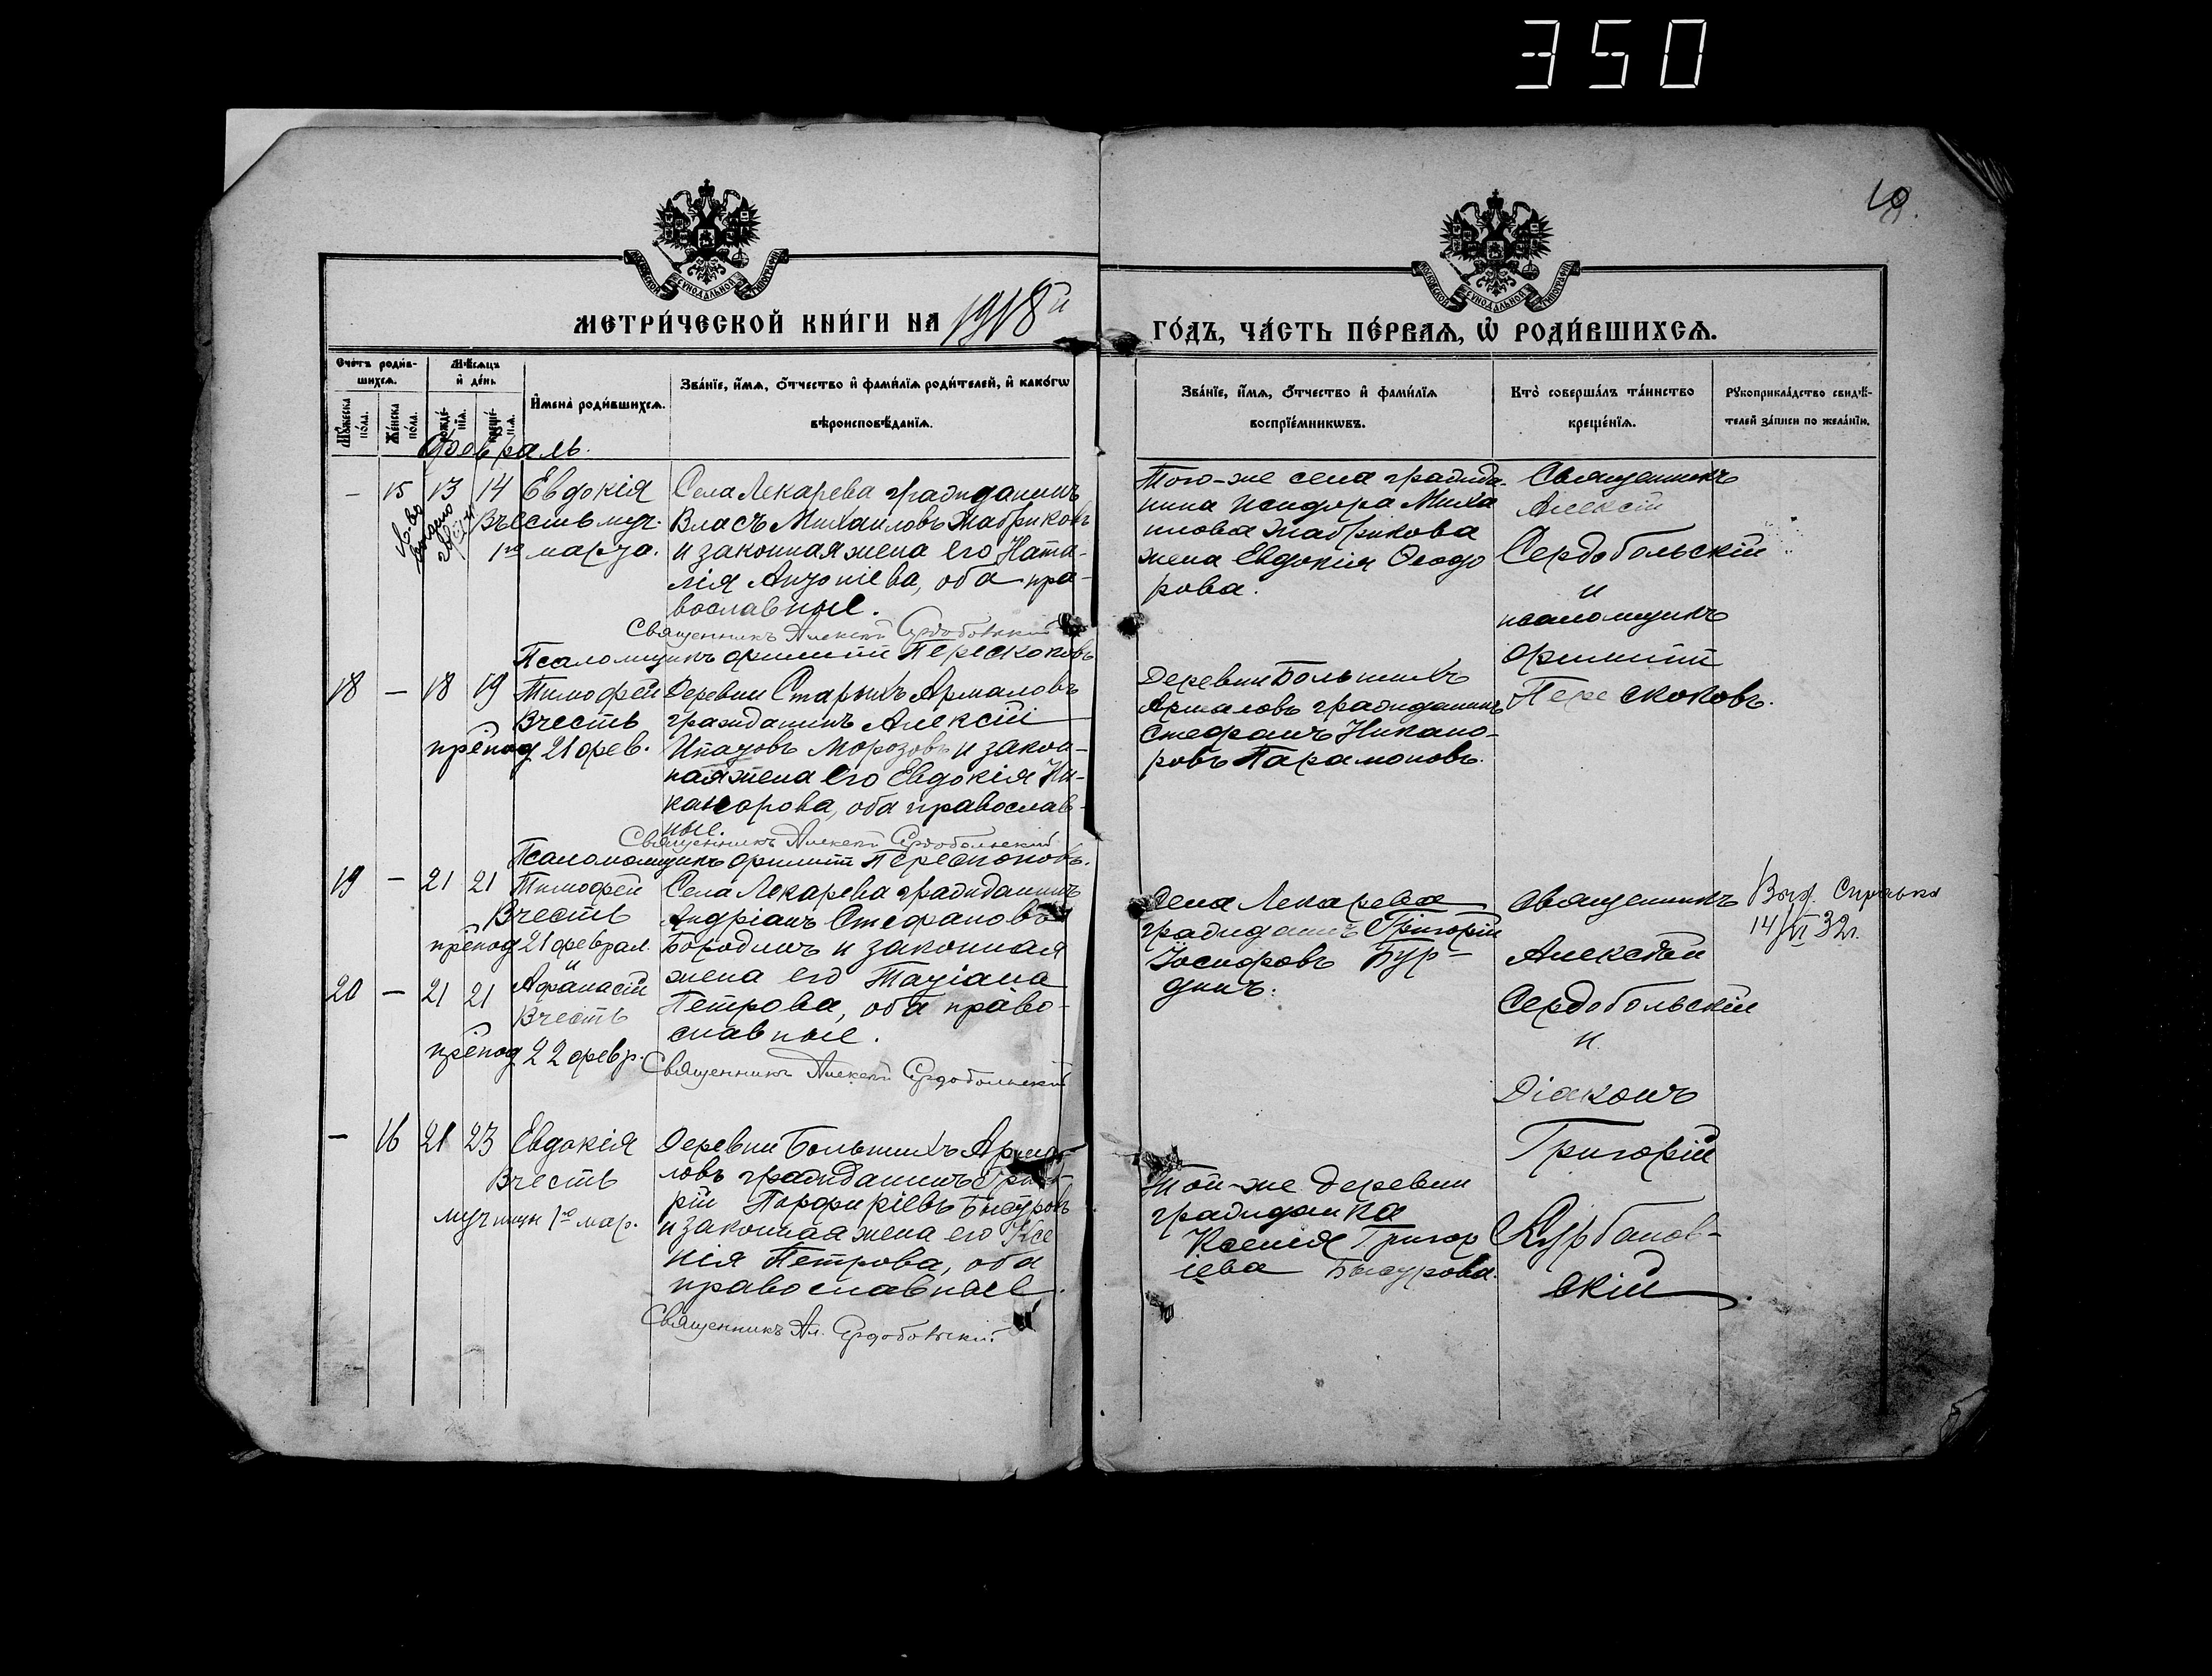 350
10.
МЕТРИ́ЧЕСКОЙ КНИ́ГИ НА 1918й ГО́ДЪ, ЧА́СТЬ ПЕ́РВАЯ, Ѽ РОДИ́ВШИХСЯ.
Сче́тъ роди́в-
шихся.
Мꙋ́жеска по́ла.
Же́нска по́ла.
Мѣ́сяцъ
и҆ де́нь
рожде́-
нїя.
креще́-
нїя.
И҆мена̀ роди́вшихся.
Зва́нїе, и҆́мя, ѻ҆́тчество и҆ фами́лїя роди́телей, и҆ како́гѡ
вѣроисповѣ́данїя.
Зва́нїе, и҆́мя, ѻ҆́тчество и҆ фами́лїя
воспрїе́мникѡвъ.
Кто̀ соверша́лъ та́инство
креще́нїя.
Рꙋкоприкла́дство свидѣ́-
телей за́писи по жела́нїю.
Февраль.
— 15 13 14 Евдокія
Въ честь муч.
1го марта.
Села Лекарева гражданинъ
Власъ Михаиловъ Жабриковъ
и законная жена его Ната-
лія Антоніева, оба пра-
вославные.
Священникъ Алексій Сердобольскій
Псаломщикъ Филиппъ Перескоковъ
Того-же села гражда-
нина Исидора Миха
илова Жабрикова
жена Евдокія Ѳеодо
рова.
Священникъ
Алексій
Сердобольскій
и
псаломщикъ
Филиппъ
Перескоковъ.
18 — 18 19 Тимофей
Въ честь
препод 21 фев.
Деревни Старыхъ Армаловъ
гражданинъ Алексій
Ипатовъ Морозовъ и закон-
ная жена его Евдокія Ни-
канорова, оба православ-
ные.
Священникъ Алексей Сердобольский
Псаломщикъ Филиппъ Перескоковъ.
Деревни Большихъ
Армаловъ гражданинъ
Стефанъ Никано-
ровъ Парамоновъ.
19 — 21 21 Тимофей
Въ честь
препод 21 феврал.
20 — 21 21 Афанасій
Въ честь
препод 22 февр.
Села Лекарева гражданинъ
Андріанъ Стефановъ
Бородинъ и законная
жена его Татіана
Петрова, оба право-
славные.
Священникъ Алексей Сердобольский
Села Лекарева
гражданинъ Григорій
Іосифовъ Бур-
динъ.
Священникъ
Алексѣй
Сердобольскій
и
Діаконъ
Григорій
Курбанов-
скій.
Выд. Справка
14/VI 32г.
— 16 21 23 Евдокія
Въ честь
мучницы 1го мар.
Деревни Большихъ Арма-
ловъ гражданинъ Григо-
рій Порфиріевъ Быстровъ
и законная жена его Ксе
нія Петрова, оба
православные.
Священникъ Ал. Сердобольский.
Той-же деревни
гражданка
Ксенія Григор
іева Быстрова.